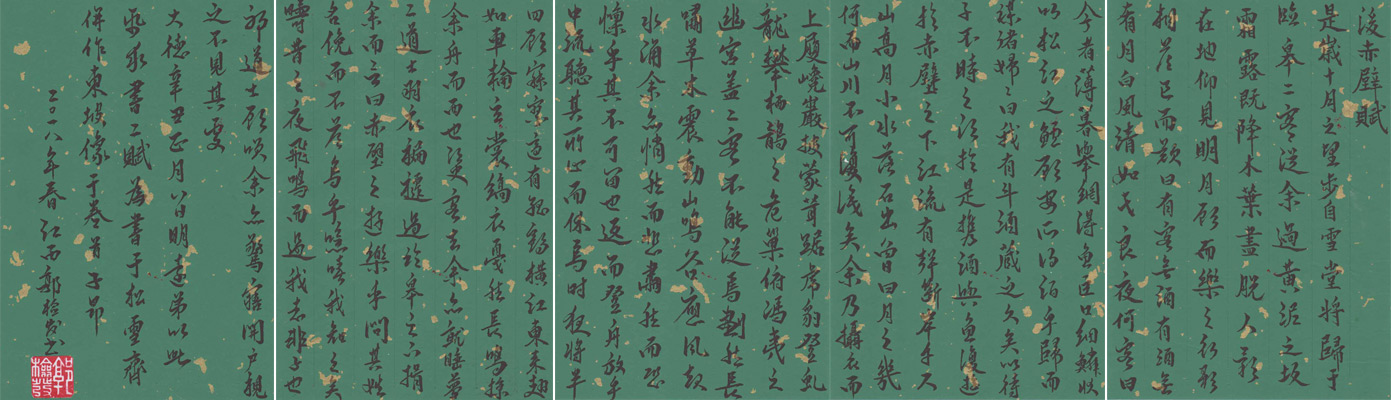 後赤壁賦
是歲十月之望步自雪堂將歸于
臨皋二客從余過黃泥之坂
霜露既降木葉盡脫人影
在地仰見明月顧而樂之行歌
相答已而歎曰有客無酒有酒無
肴月白風清如此良夜何客曰
今者薄暮舉網得魚巨口細鱗狀
似松江之鱸顧安所得酒乎歸而
謀諸婦婦曰我有斗酒藏之久矣以待
子不時之須於是攜酒與魚復遊
於赤壁之下江流有聲斷岸千尺
山高月小水落石出曾日月之幾
何而山川不可復識矣余乃攝衣而
上履巉巖披蒙茸踞虎豹登虬
龍攀棲鶻之危巢俯馮夷之
幽宮蓋二客不能從焉劃然長
嘯草木震動山鳴谷應風起
水涌余亦悄然而悲肅然而恐
懍乎其不可留也返而登舟放乎
中流聽其所止而休焉時夜將半
四顧寂寥適有孤鶴橫江東來翅
如車輪玄裳縞衣戛然長鳴掠
余舟而西也須臾客去余亦就睡夢
二道士羽衣蹁躚過臨皋之下揖
余而言曰赤壁之遊樂乎問其姓
名俛而不答嗚呼噫嘻我知之矣
疇昔之夜飛鳴而過我者非子也
邪道士顧笑余亦驚寤開戶視
之不見其處
大德辛丑正月八日明遠弟以此
紙求書二賦為書于松雪齋
并作東坡像于卷首子昂
二〇一八年春江西郭檢發書